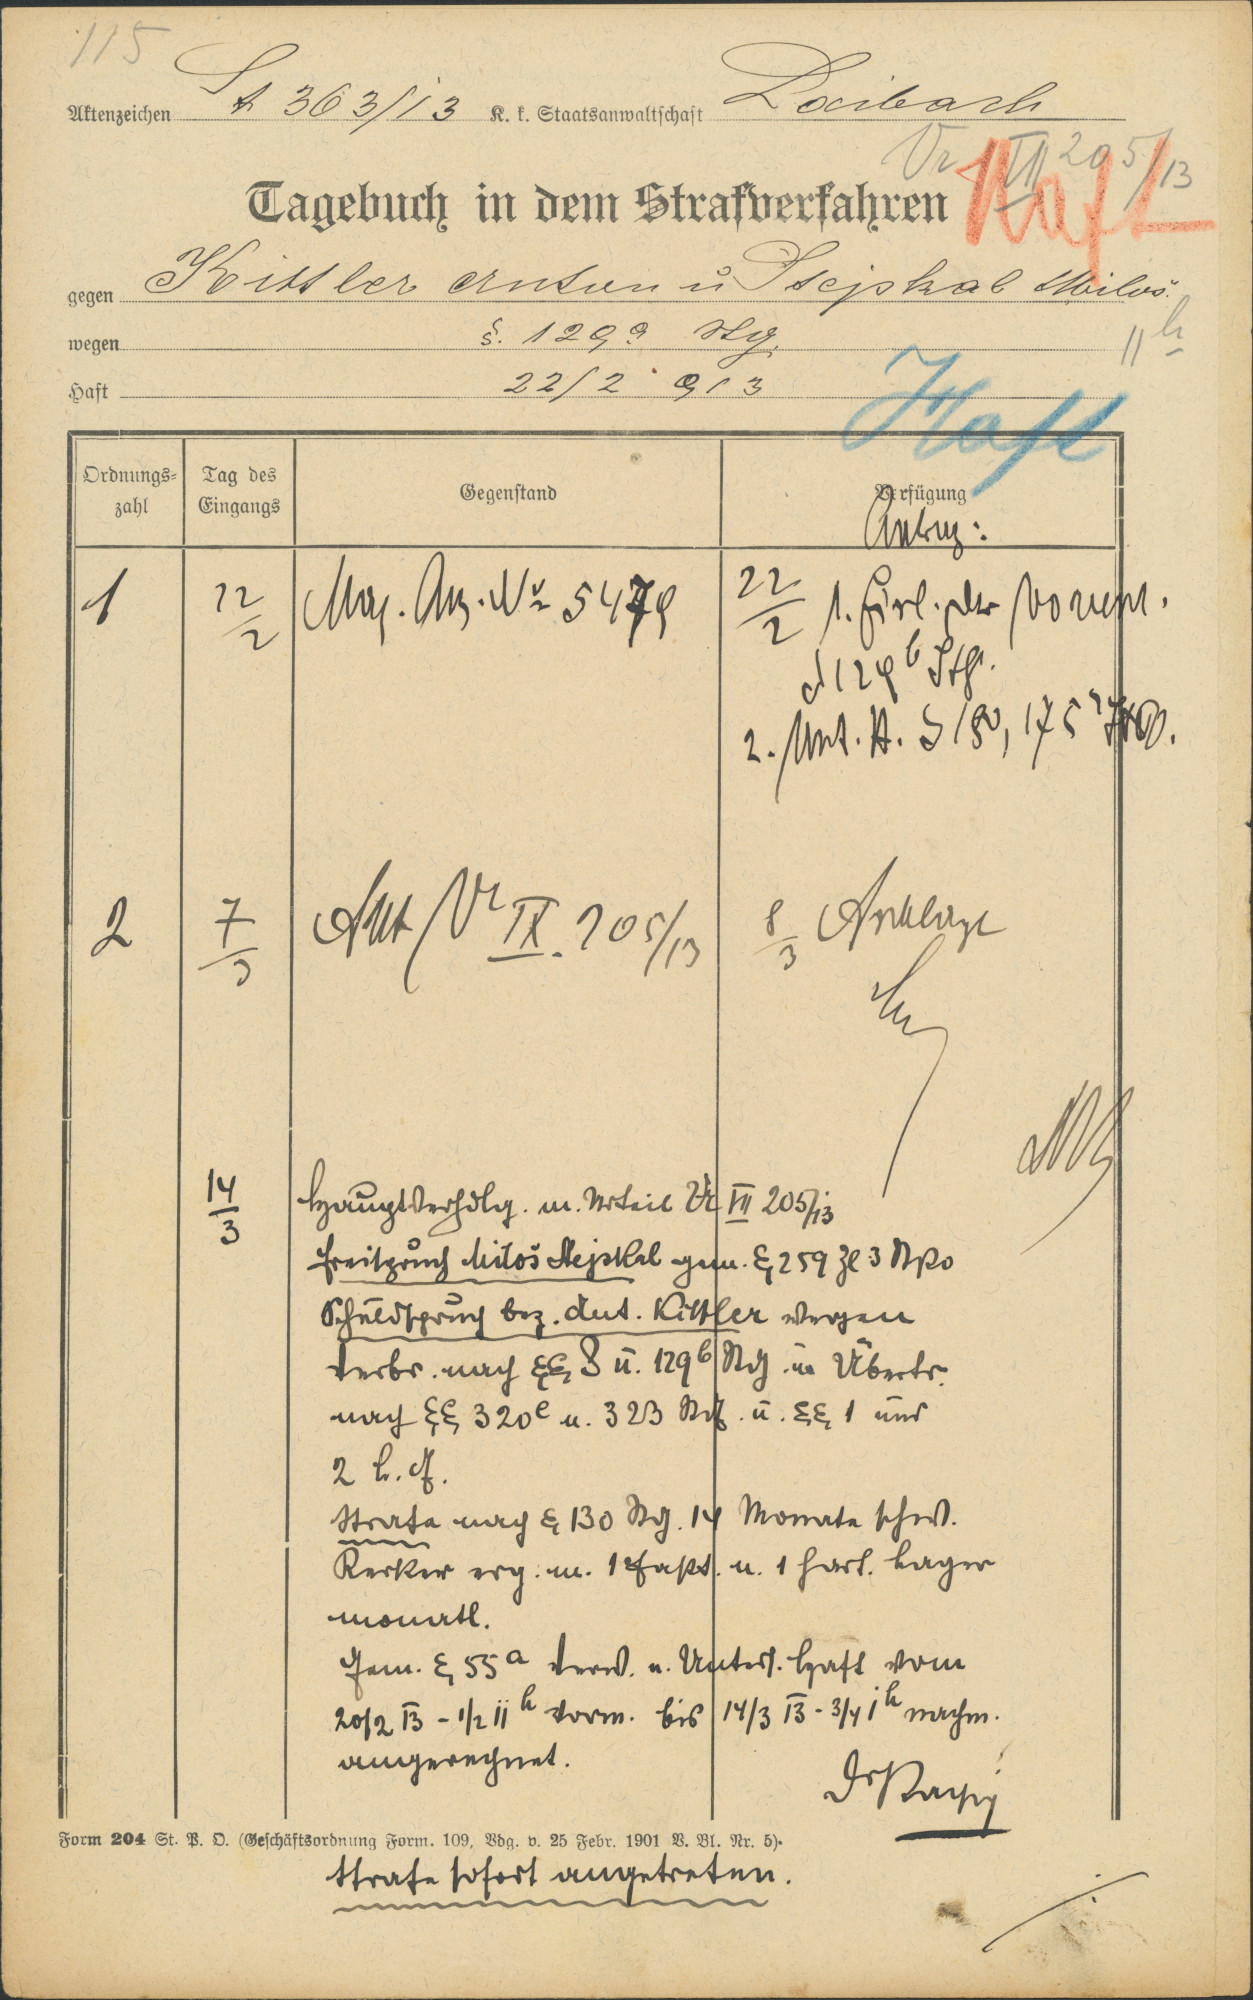 115
Aktenzeichen St 363/13 K. k. Staatsanwaltschaft Laibach
Vr VII 205/13
Haft
Tagebuch in dem Strafverfahren
gegen Kittler Anton u Stejskal Miloš.
wegen §. 129 Stg.
11h
Haft 22/2 913
Haft
Ordnungszahl Tag des Eingangs Gegenstand Verfügung
Antrag:
1 22/2 Mag. Anz. Nr 5479 22/2 1. Einl. der Vorunt.
§ 129 b Stg.
2. Unt. H. § 180, 175
2 7/3 Akt Vr IX. 205/13 8/3 Anklage
14/3 Hauptverhdlg. m. Urteil Vr VII 205/13
Freispruch Miloš Stejskal gem. § 259 Zl 3 Stpo
Schuldspruch bez. Ant. Kittler wegen
Verbr. nach §§ 8 u. 129 b Stg u Übertr.
nach §§ 320 e u. 323 Stg. u. §§ 1 und
2 L. G.
Strafe nach § 130 Stg. 14 Monate schw.
Kerker erg. m. 1 Fast. u. 1 hart. Lager
monatl.
Gem. § 55 a Verw. u. Unters. Haft vom
20/2 13 - 1/2 11 h vorm. bis 14/3 13 - 3/4 1 h nachm.
angerechnet.
Form 204 St. P. O. (Geschäftsordnung Form. 109, Vdg. v. 25 Febr. 1901 V. Bl. Nr. 5).
Strafe sofort angetreten.